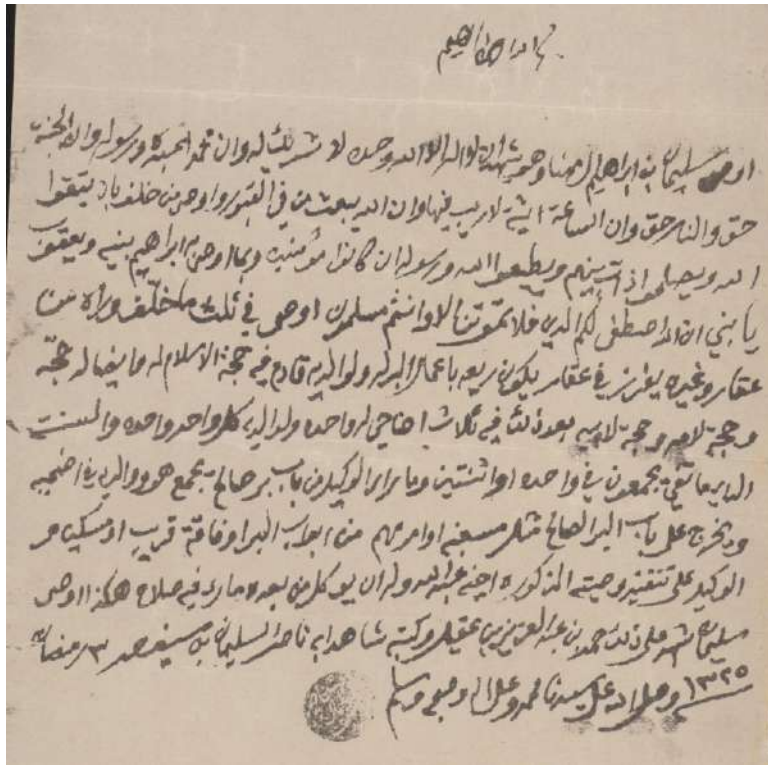 بسم الله الرحمن الرحيم
اوصى سليمان بن ابراهيم وهو يشهد ان لا اله الا الله وحده لا شريك له وان محمد عبده ورسوله وان الجنة
حق والنار حق وان الساعة اتية لا ريب فيها وان الله يبعث من في القبور واوصى من خلف بان يتقوا
الله ويصلحوا ذات بينهم ويطيعوا الله ورسوله ان كانوا مؤمنين وبما اوصى به ابراهيم بنيه ويعقوب
يا بني ان الله اصطفى لكم الدين فلا تموتن الا وانتم مسلمون اوصى في ثلث ما خلف وراه من
عقار وغيره يفرز في عقار يكون ريعه باعمال البر له ولوالديه قادم فيه حجة الاسلام له
وحجة لامه وحجة لابيه بعد ذلك فيه ثلاث اضاحي له واحده ولوالديه كل واحد واحده والسنة
يجمعون في واحده او اثنتين وما راى الوكيل من باب بر صالح يجمع هو ووالديه في اضحيه
ويخرج على باب البر الصالح مثل مسغبه او امر مهم من ابواب البر او فاقة قريب او مسكين
الوكيل على تنفيذ وصيته المذكوره ابنه عبدالله وله ان يوكل من بعده ما راى فيه صلاح هكذا اوصى
سليمان شهد على ذلك احمد بن عبد العزيز بن عقيل وكتبه شاهدا به ناصر السليمان بن سيف ٣ رمضان
١٣٢٥ وصلى الله على سيدنا محمد وعلى اله وصحبه وسلم